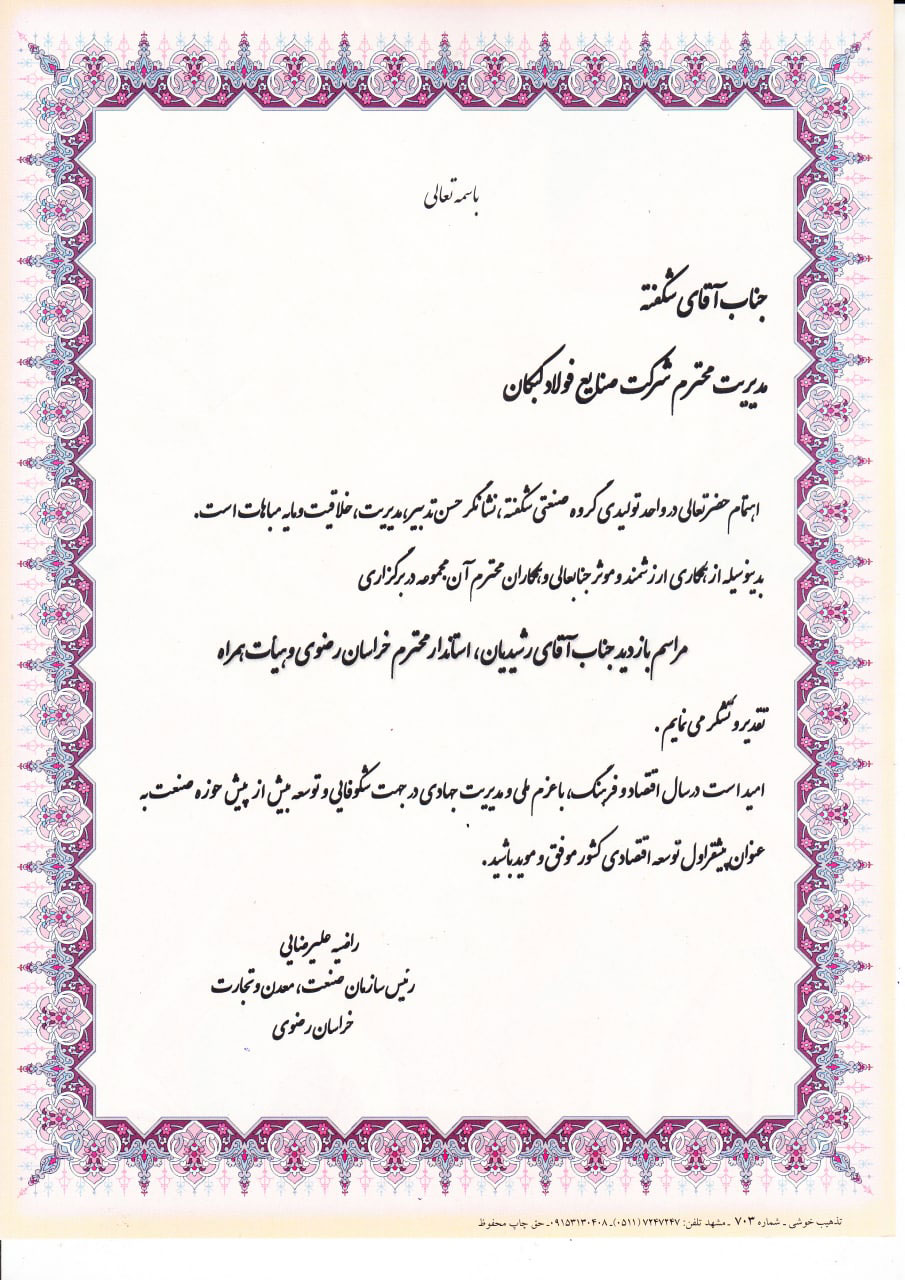 باسمه تعالی
جناب آقای شکفته
مدیریت محترم شرکت صنایع فولاد کبکان
اهتمام حضرتعالی در واحد تولیدی گروه صنعتی شکفته، نشانگر حسن تدبیر، مدیریت، خلاقیت و مایه مباهات است.
بدینوسیله از همکاری ارزشمند و موثر جنابعالی و همکاران محترم آن مجموعه در برگزاری
مراسم بازدید جناب آقای رشیدیان، استاندار محترم خراسان رضوی و هیأت همراه
تقدیر و تشکر می نمایم .
امید است در سال اقتصاد و فرهنگ، با عزم ملی و مدیریت جهادی در جهت شکوفایی و توسعه بیش از پیش حوزه صنعت به
عنوان پیشقراول توسعه اقتصادی کشور موفق و موید باشید .
راضیه علیرضایی
رئیس سازمان صنعت، معدن و تجارت
خراسان رضوی
تذهیب خوشی ـ شماره ۷۰۳ ـ مشهد تلفن: ۷۲۴۷۲۴۷ (۰۵۱۱)ـ ۰۹۱۵۳۱۳۰۴۰۸ـ حق چاپ محفوظ